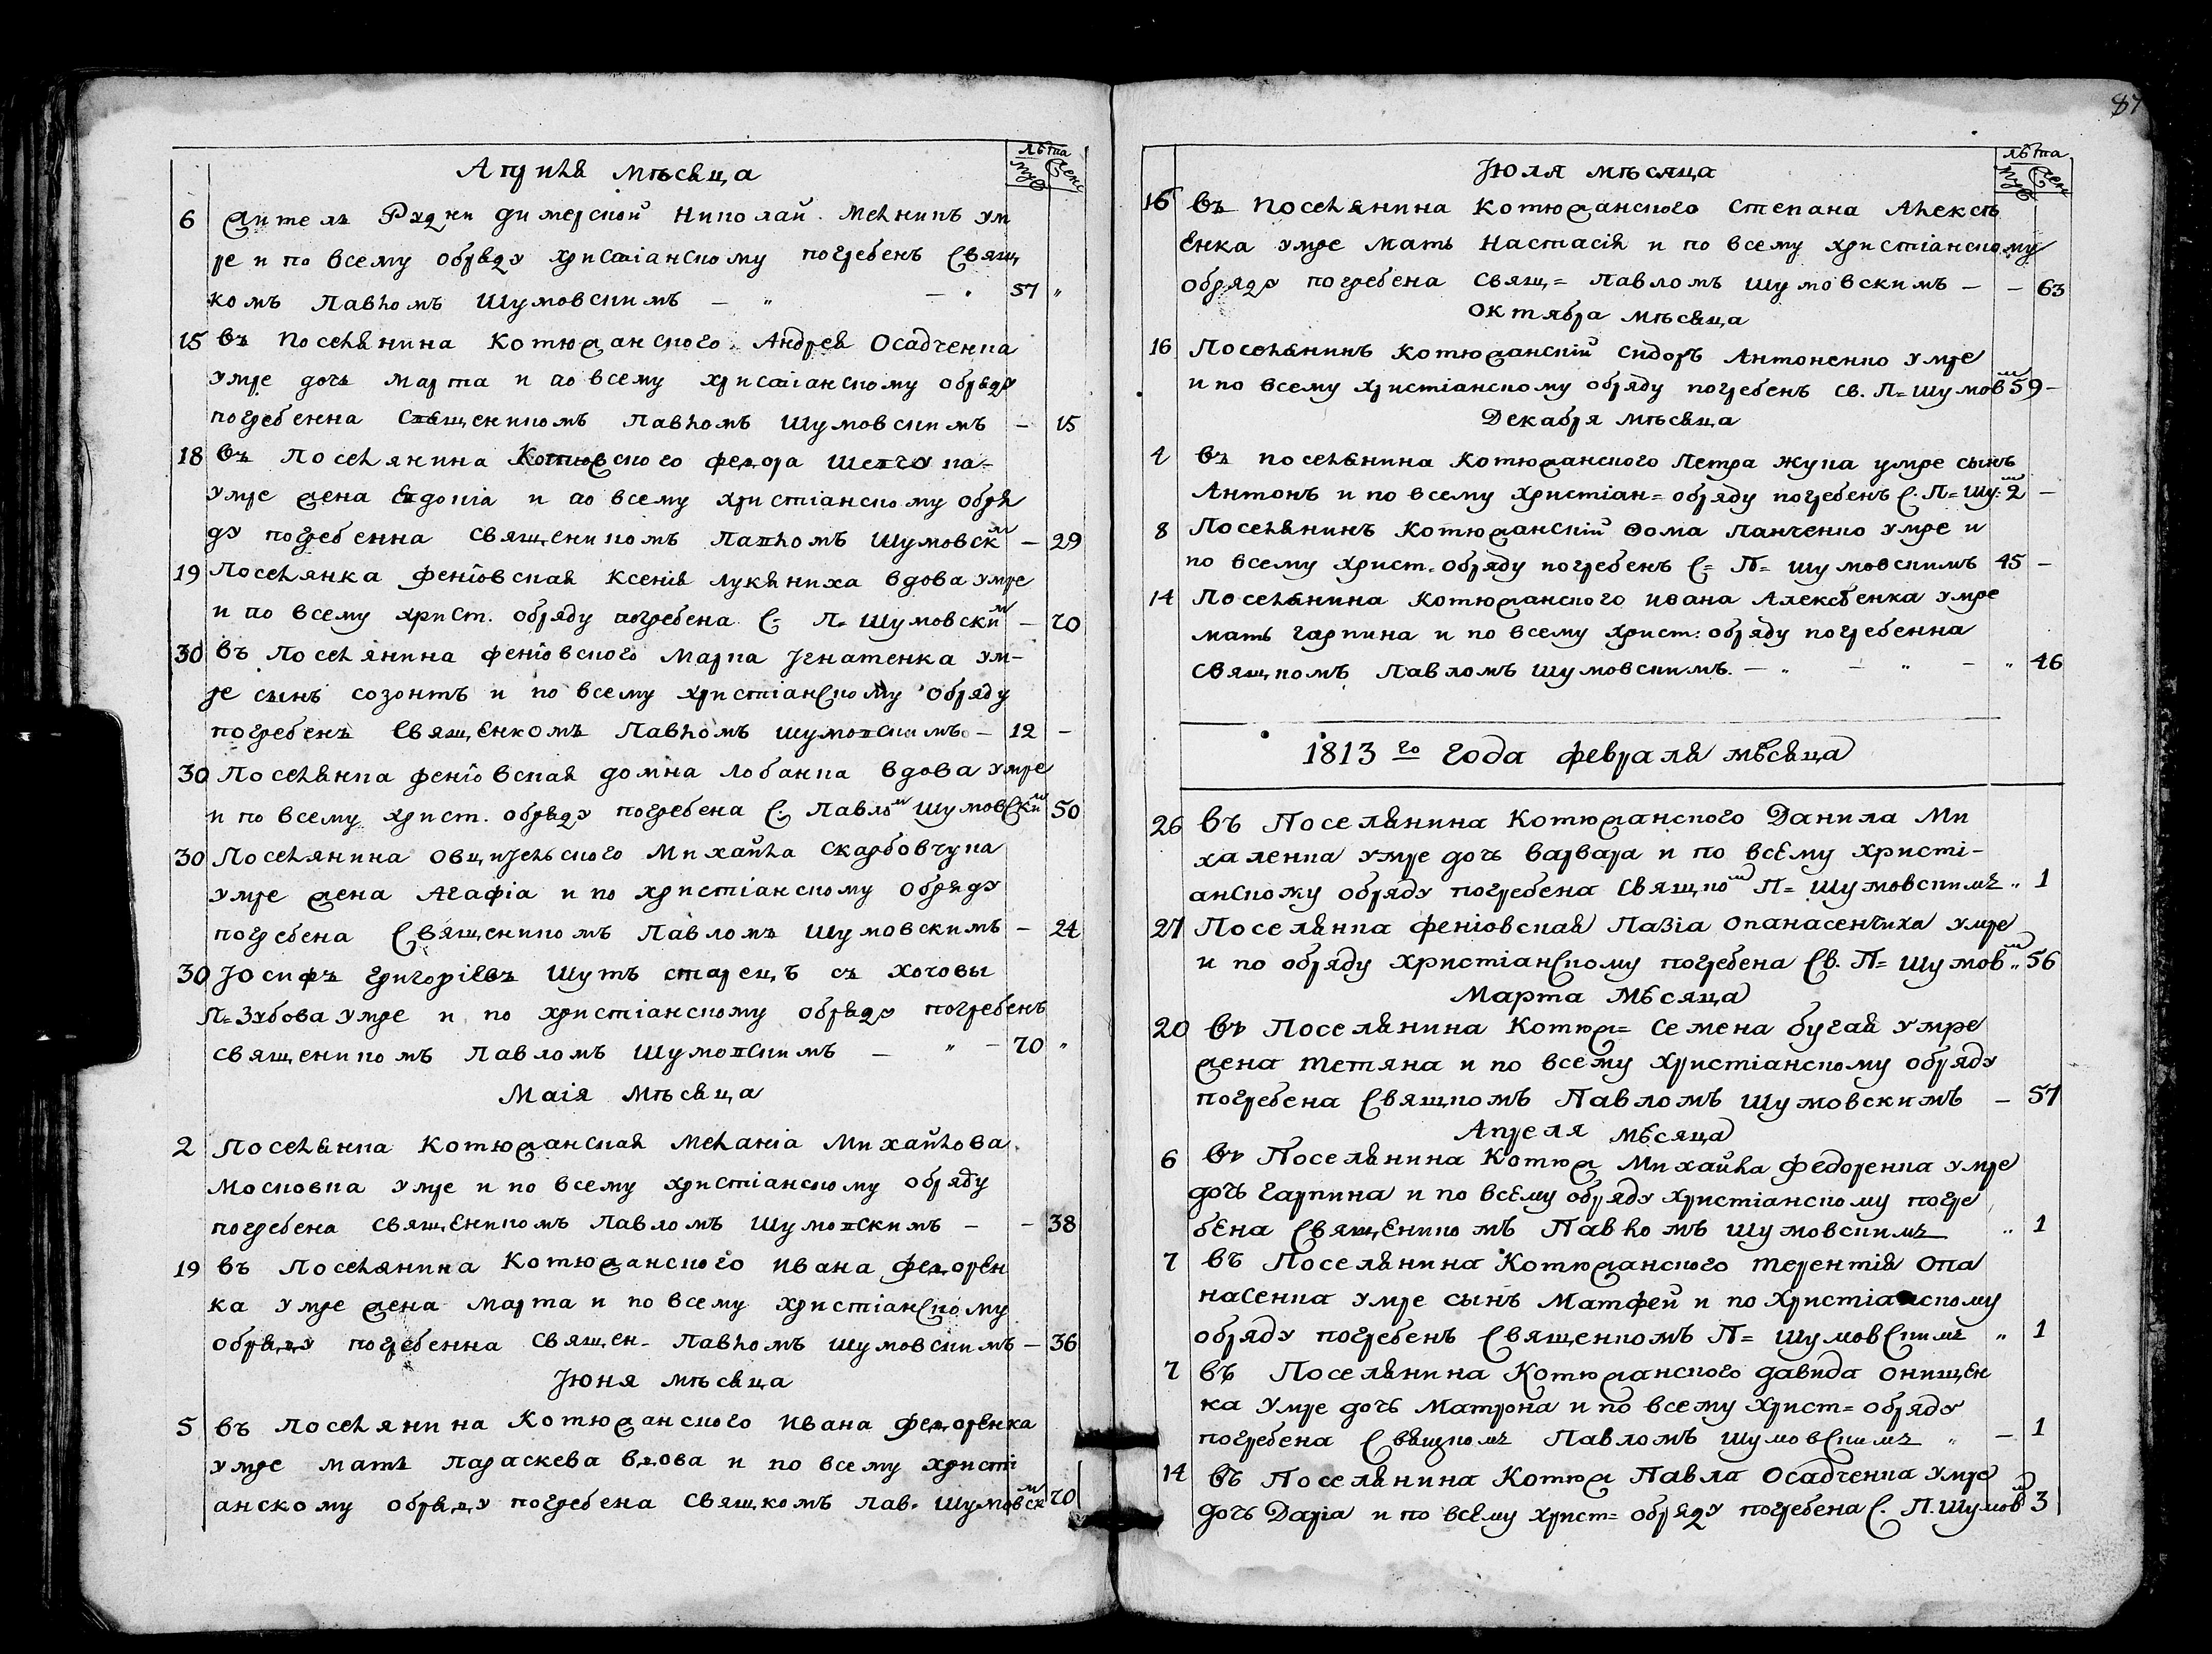 87
Априля мѣсяца
лѣта
муж жен
6 Житель Рудни димерской Николай Мельникъ ум
ре и по всему обряду християнскому погребенъ Свящ
комъ Павломъ Шумовскимъ — " — " 57 "
15 въ Поселянина Котюжанского Андрея Осадченка
умре дочь Марта и по всему християнскому обряду
погребенна Священикомъ Павломъ Шумовскимъ — 15
18 въ Поселянина Федора Шевчука
умре жена Евдокіа и по всему христіанскому обря
ду погребенна священикомъ Павломъ Шумовским — 29
19 Поселянка феніовская Ксенія Лукяниха вдова умре
и по всему христ. обряду погребена С: П= Шумовским — 70
30 въ Поселянина феніовского Марка Ігнатенка ум-
ре сынъ Созонтъ и по всему христіанскому обряду
погребенъ Священкомъ Павломъ Шумовскимъ — 12 —
30 Поселянка феніовская домна лобанка вдова умре
и по всему христ. обряду погребена С: Павлом Шумовским 50
30 Поселянина Михайла Скарбовчука
умре жена Агафіа и по христіанскому обряду
погребена Священикомъ Павломъ Шумовскимъ — 24
30 Іосифъ Григоріевъ Шутъ старецъ съ
П= Зубова умре и по христіанскому обряду погребенъ
священикомъ Павломъ Шумовскимъ — " — 70 "
Маія мѣсяца
2 Поселянка Котюжанская Меланіа Михайлова
Московка умре и по всему христіанскому обряду
погребена священикомъ Павломъ Шумовскимъ — — 38
19 въ Поселянина Котюжанского Ивана Федорен
ка умре жена Марта и по всему христіанскому
обряду погребенна Священ- Павломъ Шумовскимъ — 36
Іюня мѣсяца
5 въ Поселянина Котюжанского Ивана Федоренка
умре мать Параскева вдова и по всему христі
анскому обряду погребена Свящкомъ Пав. Шумовским 70
Іюля мѣсяца
лѣта
муж жен
16 въ Поселянина Котюжанского Степана Алексѣ
Енка умре Мать Настасія и по всему христіанскому
обряду погребена Свящ= Павломъ Шумовскимъ — — 63
Октября мѣсяца
16 Поселянинъ Котюжанскій Сидоръ Антоненко умре
и по всему христіанскому обряду погребенъ св. П= Шумовм 59 —
Декабря мѣсяца
4 въ поселянина Котюжанского Петра Жука умре сынъ
Антонъ и по всему христіан= обряду погребенъ С. П= Шу:м 2 —
8 Поселянинъ Котюжанскій Ѳома Панченко умре и
по всему христ. обряду погребенъ С= П= Шумовскимъ 45 —
14 Поселянина Котюжанского Ивана Алексѣенка умре
мать гарпина и по всему христ: обряду погребенна
свящкомъ Павломъ Шумовскимъ. — " — " — " 46
1813го года февраля мѣсяца
26 въ Поселянина Котюжанского Данила Ми
халенка умре дочь варвара и по всему христі-
анскому обряду погребена Свящком П= Шумовскимъ " 1
27 Поселянка феніовская Пазіа Опанасенчиха умре
и по обряду христіанскому погребена Св. П= Шумовм " 56
Марта мѣсяца
20 въ Поселянина Котюж= Семена бугая умре
жена тетяна и по всему христіанскому обряду
погребена Свящкомъ Павломъ Шумовскимъ — 57
Апреля мѣсяца
6 въ Поселянина Котюж Михайла Федоренка умре
дочь гарпина и по всему обряду христіанскому погре
бена Священикомъ Павломъ Шумовскимъ " 1
7 въ Поселянина Котюжанского терентія Опа
насенка умре сынъ Матфей и по христіанскому
обряду погребенъ Священкомъ П= Шумовскимъ " 1
7 въ Поселянина Котюжанского давида Онищен
ка умре дочь Матрона и по всему христ= обряду
погребена Свящкомъ Павломъ Шумовскимъ " — 1
14 въ Поселянина Котюж Павла Осадченка умре
дочь Даріа и по всему христ= обряду погребена С. П. Шумовм 3